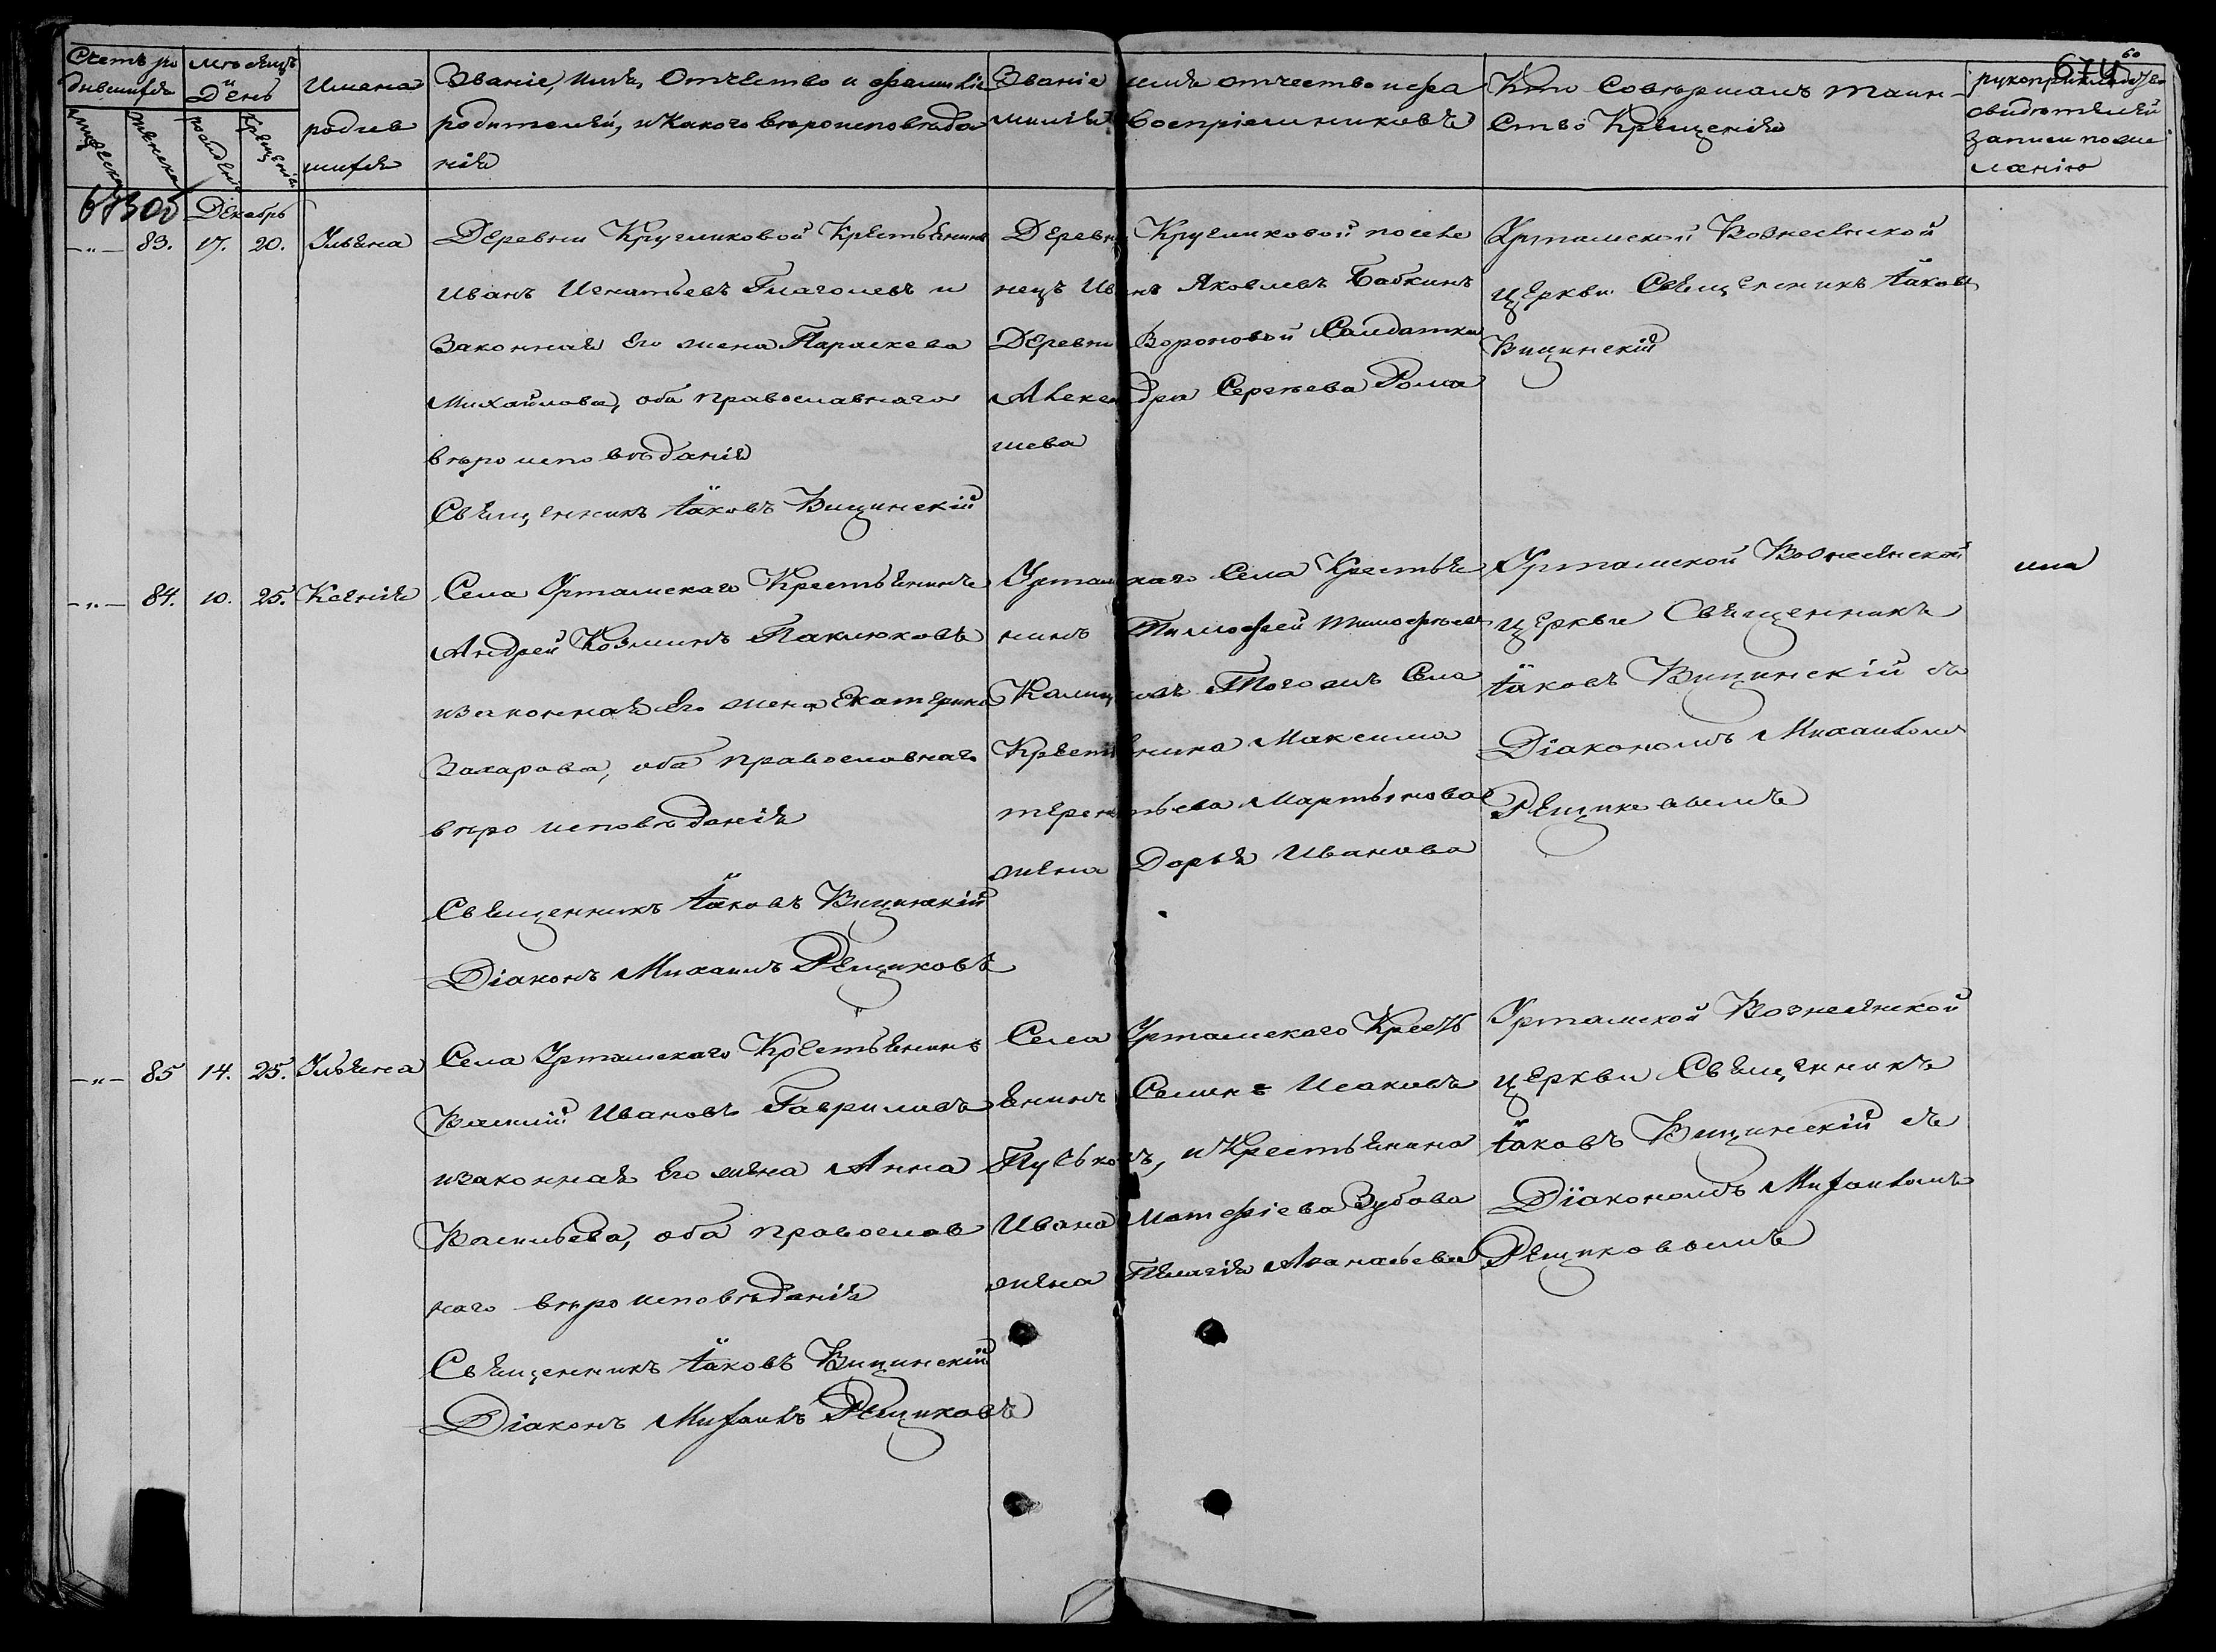 674
60
Счетъ ро
дившихся
мужеска
женска
месяцъ
и
День
рожденія
крещенія
Имена
родив
шихся
Званіе, имя, Отчество и фамилія
родителей, и какого вероисповеда
нія
Званіе имя отчество и фа
милія Воспріемниковъ
Кто Совершалъ таин-
ство Крещенія
свидетелей
записи по же
ланію
Декабрь
-"- 83. 17. 20. Ульяна
Деревни Кругликовой Крестьянинъ
Иванъ Игнатьевъ Глаголевъ и
Законная его жена Параскева
Михайлова, оба православнаго
вероисповеданія
Священникъ Іаковъ Вицинскій
Деревни Кругликовой поселе
нецъ Иванъ Яковлевъ Бабкинъ
Деревни Вороновой Салдатка
Александра Сергеева Рома
шева
Уртамской Вознесенской
церкви Священникъ Іаковъ
Вицинскій
-"- 84. 10. 25. Ксенія
Села Уртамскаго Крестьянинъ
Андрей Козминъ Паклюковъ
и законная его жена Екатерина
Захарова, оба православнаго
вероисповеданія
Священникъ Іаковъ Вицинскій
Діаконъ Михаилъ Рещиковъ
Уртамскаго Села Крестья
нинъ Тимофей Тимофеевъ
Тогожъ Села
Крестьянина Максима
терентьева Мартынова
жена Дарья Иванова
Уртамской Вознесенской
церкви Священникъ
Іаковъ Вицинскій съ
Діакономъ Михаиломъ
Рещиковымъ
-"- 85 14. 25. Ульяна
Села Уртамскаго Крестьянинъ
Василій Ивановъ Гавриловъ
и законная его жена Анна
Васильева, оба православ
наго вероисповеданія
Священникъ Іаковъ Вицинскій
Діаконъ Михаилъ Рещиковъ
Села Уртамскаго Кресть
янинъ Семенъ Исаковъ
и Крестьянина
Ивана Матфіева Зубова
жена Пелагія Афанасьева
Уртамской Вознесенской
церкви Священникъ
Іаковъ Вицинскій съ
Діакономъ Михаиломъ
Рещиковымъ